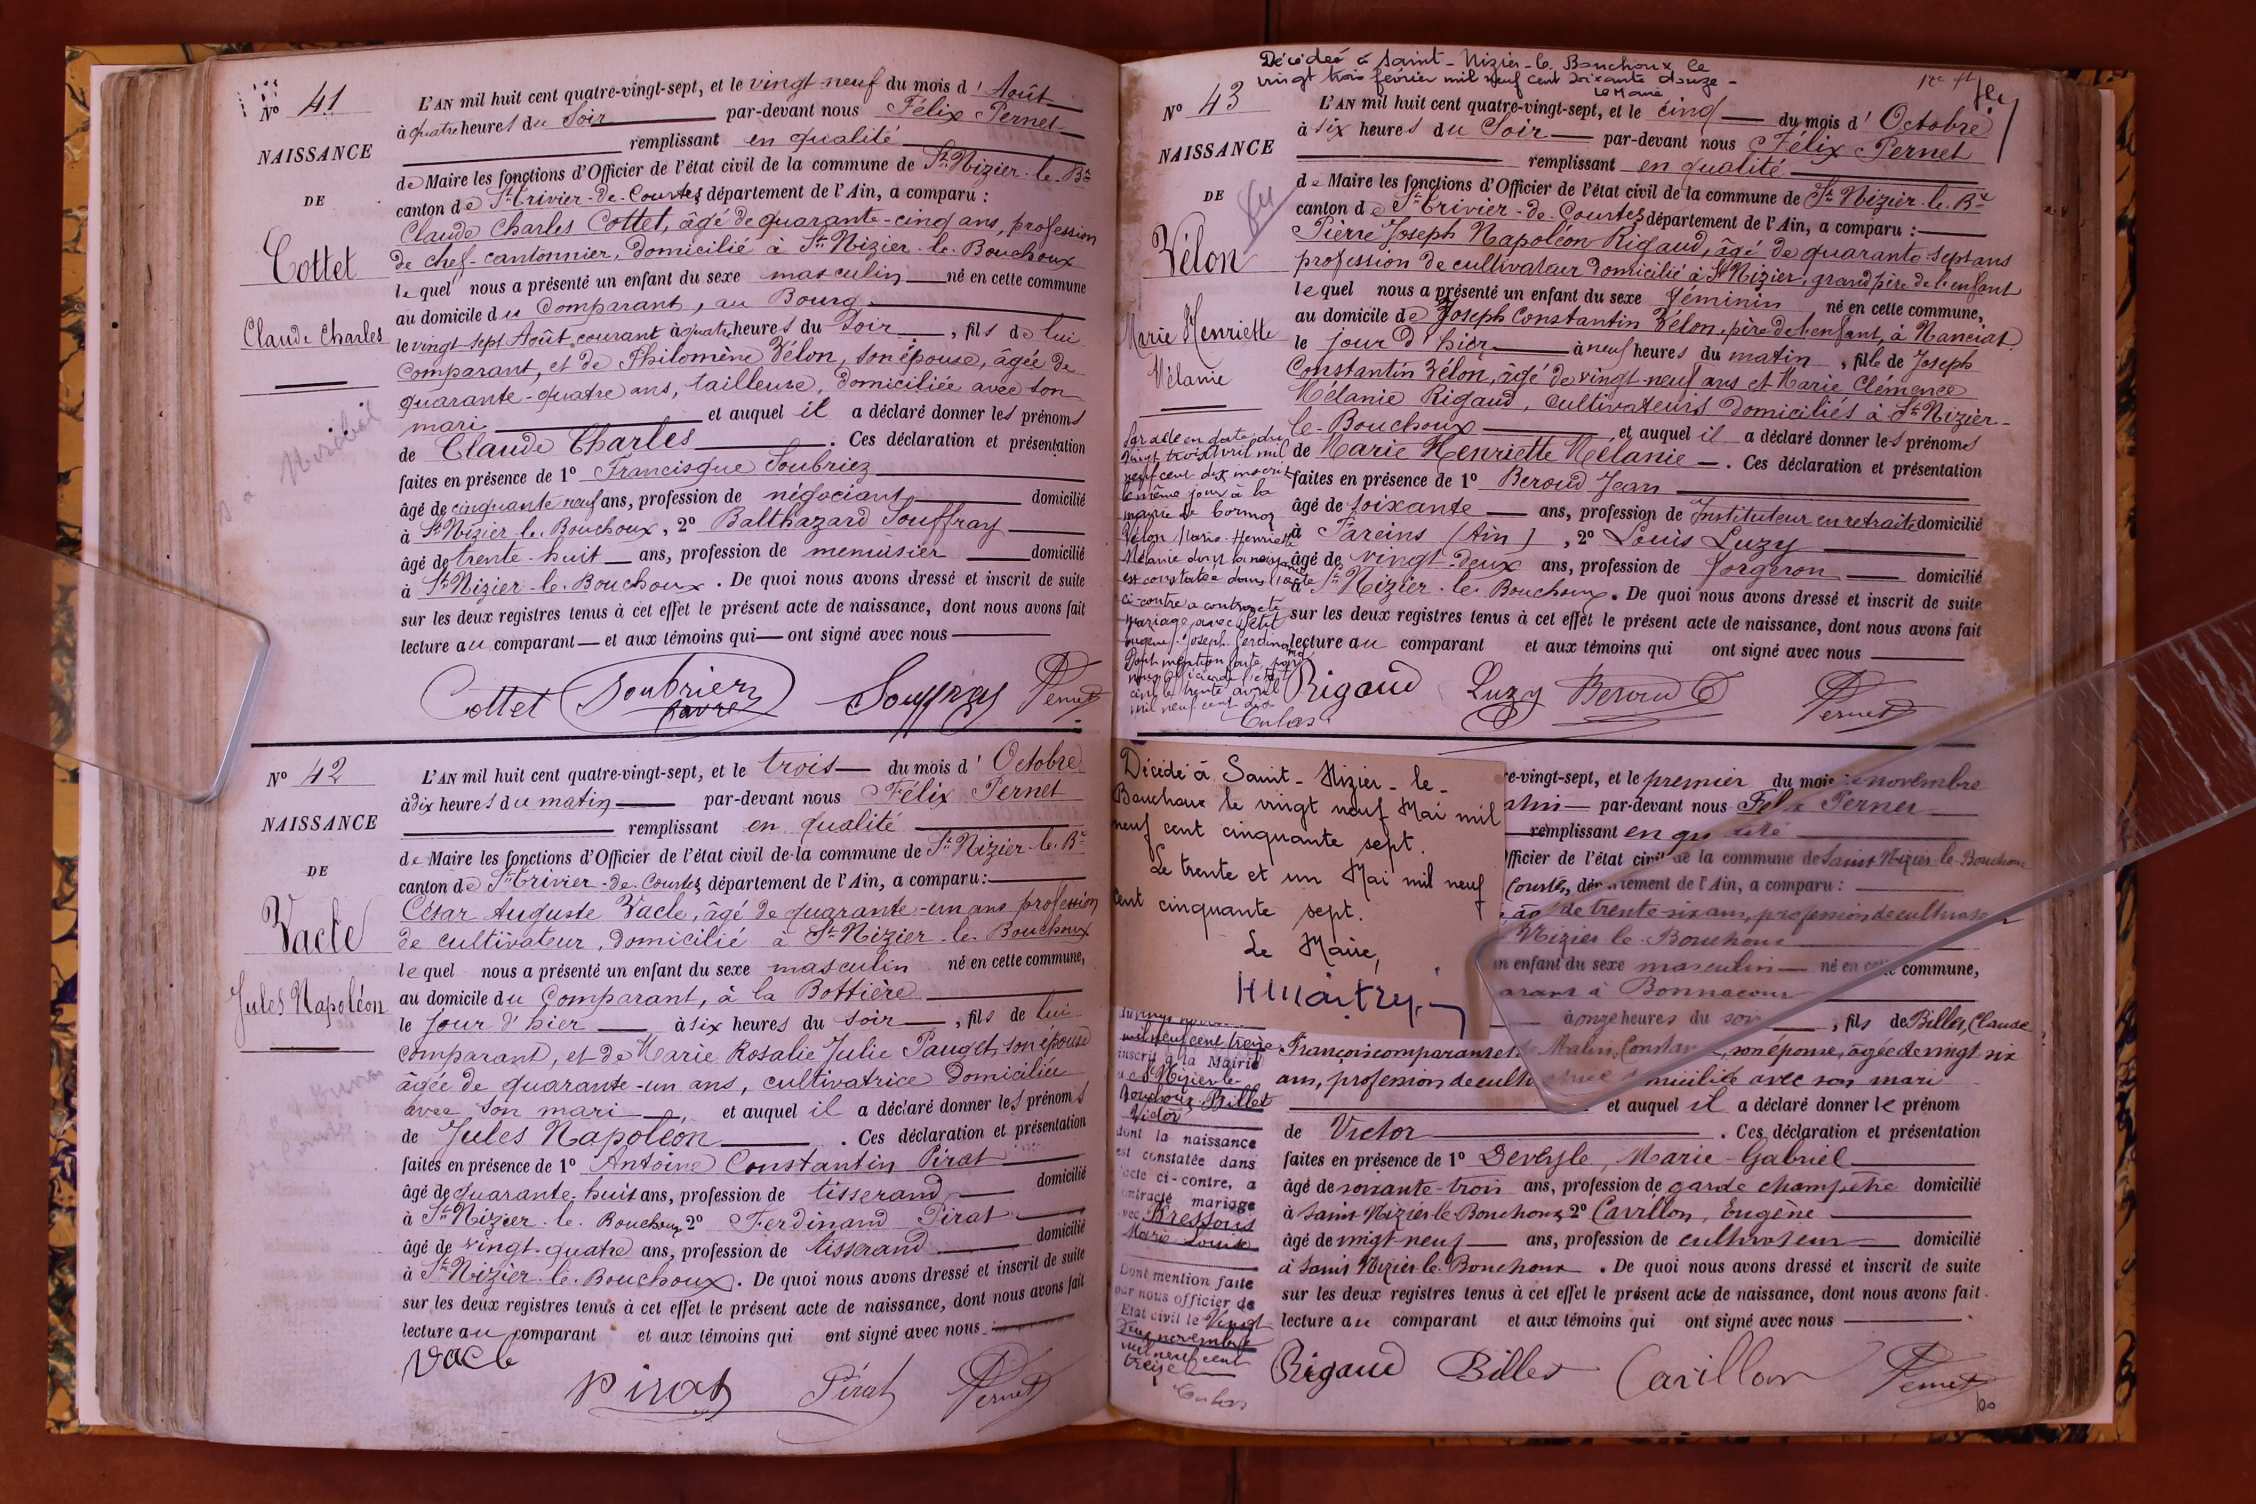 Nº 41
NAISSANCE
DE
Cottet
Claude Charles
L'AN mil huit cent quatre-vingt-sept, et le vingt-neuf du mois d'Août
à quatre heures du Soir par-devant nous Félix Pernet
remplissant en qualité
de Maire les fonctions d'Officier de l'état civil de la commune de St Nizier-le-Bx
canton de St Trivier-de-Courtes département de l'Ain, a comparu :
Claude Charles Cottet, âgé de quarante-cinq ans, profession
de chef-cantonnier, domicilié à St Nizier-le-Bouchoux
lequel nous a présenté un enfant du sexe masculin né en cette commune
au domicile du Comparant, au Bourg
le vingt-sept Août courant à quatre heures du Soir, fils de lui
comparant, et de Philomène Vélon, son épouse, âgée de
quarante-quatre ans, tailleuse, domiciliée avec son
mari et auquel il a déclaré donner les prénoms
de Claude Charles. Ces déclaration et présentation
faites en présence de 1º Francisque Soubriez
âgé de cinquante neuf ans, profession de négociant domicilié
à St Nizier-le-Bouchoux, 2º Balthazard Souffray
âgé de trente-huit ans, profession de menuisier domicilié
à St Nizier-le-Bouchoux. De quoi nous avons dressé et inscrit de suite
sur les deux registres tenus à cet effet le présent acte de naissance, dont nous avons fait
lecture au comparant et aux témoins qui ont signé avec nous
Cottet Souffray Pernet
Nº 42
NAISSANCE
DE
Vacle
Jules Napoléon
L'AN mil huit cent quatre-vingt-sept, et le trois du mois d'Octobre
à dix heures du matin par-devant nous Félix Pernet
remplissant en qualité
de Maire les fonctions d'Officier de l'état civil de la commune de St Nizier-le-Bx
canton de St Trivier-de-Courtes département de l'Ain, a comparu :
César Auguste Vacle, âgé de quarante-un ans profession
de cultivateur, domicilié à St Nizier-le-Bouchoux
lequel nous a présenté un enfant du sexe masculin né en cette commune,
au domicile du Comparant, à la Bottière
le jour d'hier à six heures du soir, fils de lui
comparant, et de Marie Rosalie Julie Pauget, son épouse
âgée de quarante-un ans, cultivatrice domiciliée
avec son mari, et auquel il a déclaré donner les prénoms
de Jules Napoléon. Ces déclaration et présentation
faites en présence de 1º Antoine Constantin Pirat
âgé de quarante-huit ans, profession de tisserand domicilié
à St Nizier-le-Bouchoux 2º Ferdinand Pirat
âgé de vingt-quatre ans, profession de tisserand domicilié
à St Nizier-le-Bouchoux. De quoi nous avons dressé et inscrit de suite
sur les deux registres tenus à cet effet le présent acte de naissance, dont nous avons fait
lecture au comparant et aux témoins qui ont signé avec nous
Vacle Pirat Pirat Pernet
Décédée à Saint-Nizier-le-Bouchoux le
vingt trois février mil neuf cent soixante douze -
Le Maire
Nº 43
NAISSANCE
DE
Vélon
Marie Henriette
Mélanie
L'AN mil huit cent quatre-vingt-sept, et le cinq du mois d'Octobre
à six heures du Soir par-devant nous Félix Pernet
remplissant en qualité
de Maire les fonctions d'Officier de l'état civil de la commune de St Nizier-le-Bx
canton de St Trivier-de-Courtes département de l'Ain, a comparu :
Pierre Joseph Napoléon Rigaud, âgé de quarante-sept ans
profession de cultivateur domicilié à St Nizier, grand père de l'enfant
lequel nous a présenté un enfant du sexe féminin né en cette commune,
au domicile de Joseph Constantin Vélon, père de l'enfant, à Nanciat
le jour d'hier à neuf heures du matin, fille de Joseph
Constantin Vélon, âgé de vingt-neuf ans et Marie Clémence
Mélanie Rigaud, cultivateurs domiciliés à St Nizier-
le-Bouchoux et auquel il a déclaré donner les prénoms
de Marie Henriette Mélanie. Ces déclaration et présentation
faites en présence de 1º Beroud Jean
âgé de soixante ans, profession de Instituteur en retraite domicilié
à Fareins (Ain), 2º Louis Luzy
âgé de vingt-deux ans, profession de forgeron domicilié
à St Nizier-le-Bouchoux. De quoi nous avons dressé et inscrit de suite
sur les deux registres tenus à cet effet le présent acte de naissance, dont nous avons fait
lecture au comparant et aux témoins qui ont signé avec nous
Par acte en date du
vingt trois avril mil
neuf cent dix inscrit
le même jour à la
mairie de Cormoz
Vélon Marie-Henriette
Mélanie dont la naissance
est constatée dans l'acte
ci-contre a contracté
mariage avec Petit
Joseph Ferdinand
Dont mention faite par
nous officier de l'état
civil le trente avril
mil neuf cent dix
Rigaud Luzy Beroud Pernet
Décédé à Saint-Nizier-le-
Bouchoux le vingt neuf Mai mil
neuf cent cinquante sept.
Le trente et un Mai mil neuf
cent cinquante sept.
Le Maire,
re-vingt-sept, et le premier du mois de novembre
par-devant nous Félix Pernet
remplissant en qualité
Officier de l'état civil de la commune de Saint Nizier-le-Bouchoux
Courtes, département de l'Ain, a comparu :
de trente-six ans, profession de cultivateur
Nizier le Bouchoux
un enfant du sexe masculin né en cette commune,
à Bonnacour
à onze heures du soir, fils de Billet, Claude
François comparant et de Constance, son épouse, âgée de vingt six
ans, profession de domiciliée avec son mari
et auquel il a déclaré donner le prénom
de Victor. Ces déclaration et présentation
faites en présence de 1º Deveyle, Marie-Gabriel
âgé de soixante-trois ans, profession de garde champêtre domicilié
à Saint-Nizier-le-Bouchoux 2º Cavillon, Eugène
âgé de vingt-neuf ans, profession de cultivateur domicilié
à Saint Nizier-le-Bouchoux. De quoi nous avons dressé et inscrit de suite
sur les deux registres tenus à cet effet le présent acte de naissance, dont nous avons fait
lecture au comparant et aux témoins qui ont signé avec nous
mil neuf cent treize
inscrit à la Mairie
de St Nizier-le-
Bouchoux Billet
Victor
dont la naissance
est constatée dans
l'acte ci-contre, a
contracté mariage
avec Bressous
Marie Louise
Dont mention faite
par nous officier de
Etat civil le Vingt
deux novembre
mil neuf cent
treize
Rigaud Billet Cavillon Pernet